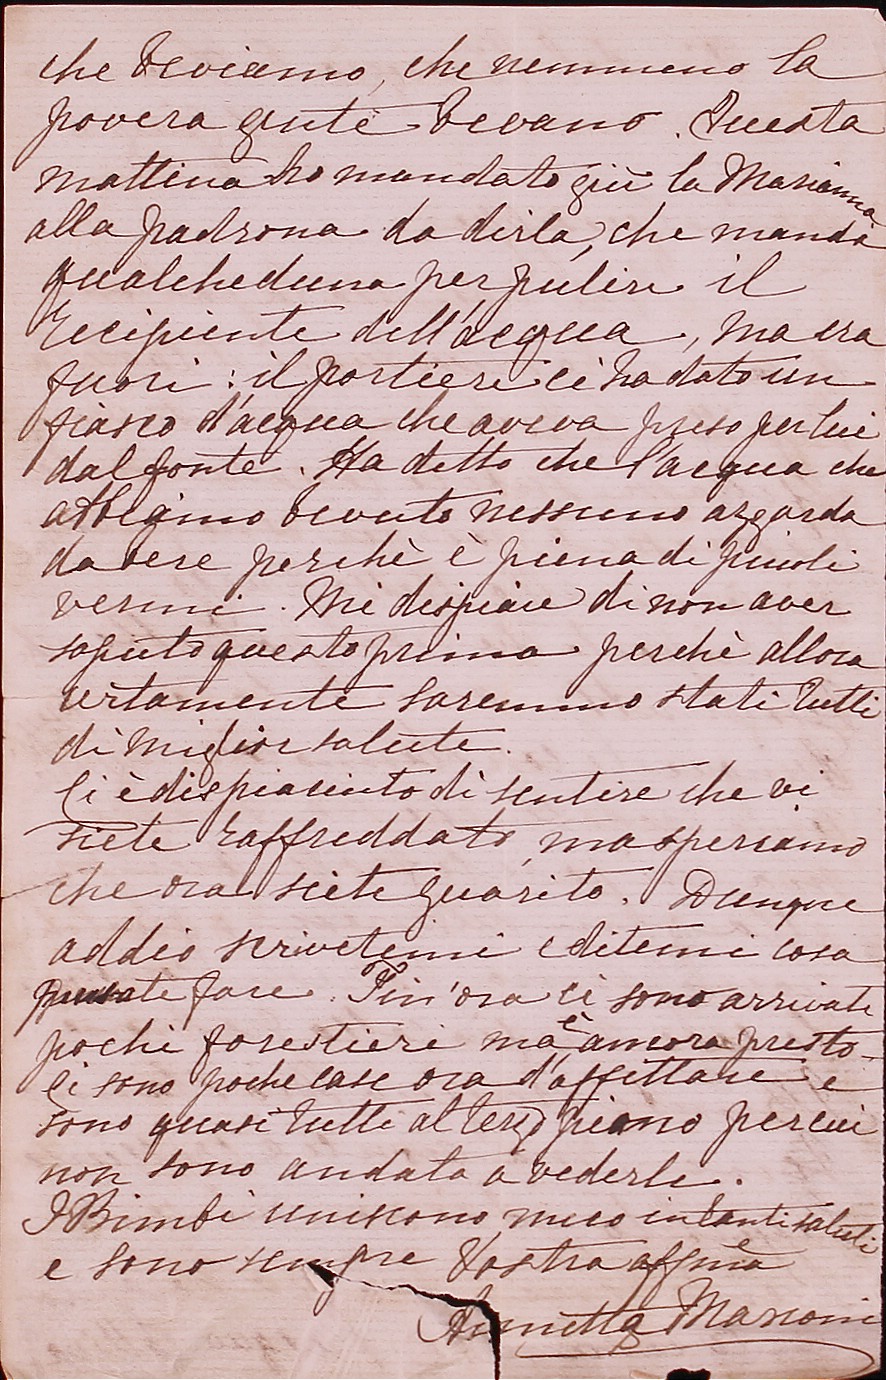 che beviamo, che nemmeno la
povera gente bevano. Questa
mattina ho mandato giù la Marianna
alla padrona da dirla, che manda
qualcheduna per pulire il
recipiente dell'acqua, ma era
fuori: il portiere ci ha dato un
fiasco d'acqua che aveva preso per lui
dal fonte. Ha detto che l'acqua che
abbiamo bevuto nessuno azzarda
da bere perchè è piena di piccoli
vermi. Mi dispiace di non aver
saputo questo prima perchè allora
certamente saremmo stati tutti
di miglior salute.
Ci è dispiaciuto di sentire che vi
siete raffreddato, ma speriamo
che ora siete guarito. Dunque
addio scrivetemi e ditemi cosa
pensate fare. Fin'ora ci sono arrivati
pochi forestieri ma è ancora presto-
Ci sono poche case ora d'affittare e
sono quasi tutti al terzo piano per cui
non sono andata a vederle.
I Bimbi uniscono meco in tanti saluti
e sono sempre Vostra affma
Annetta Marconi